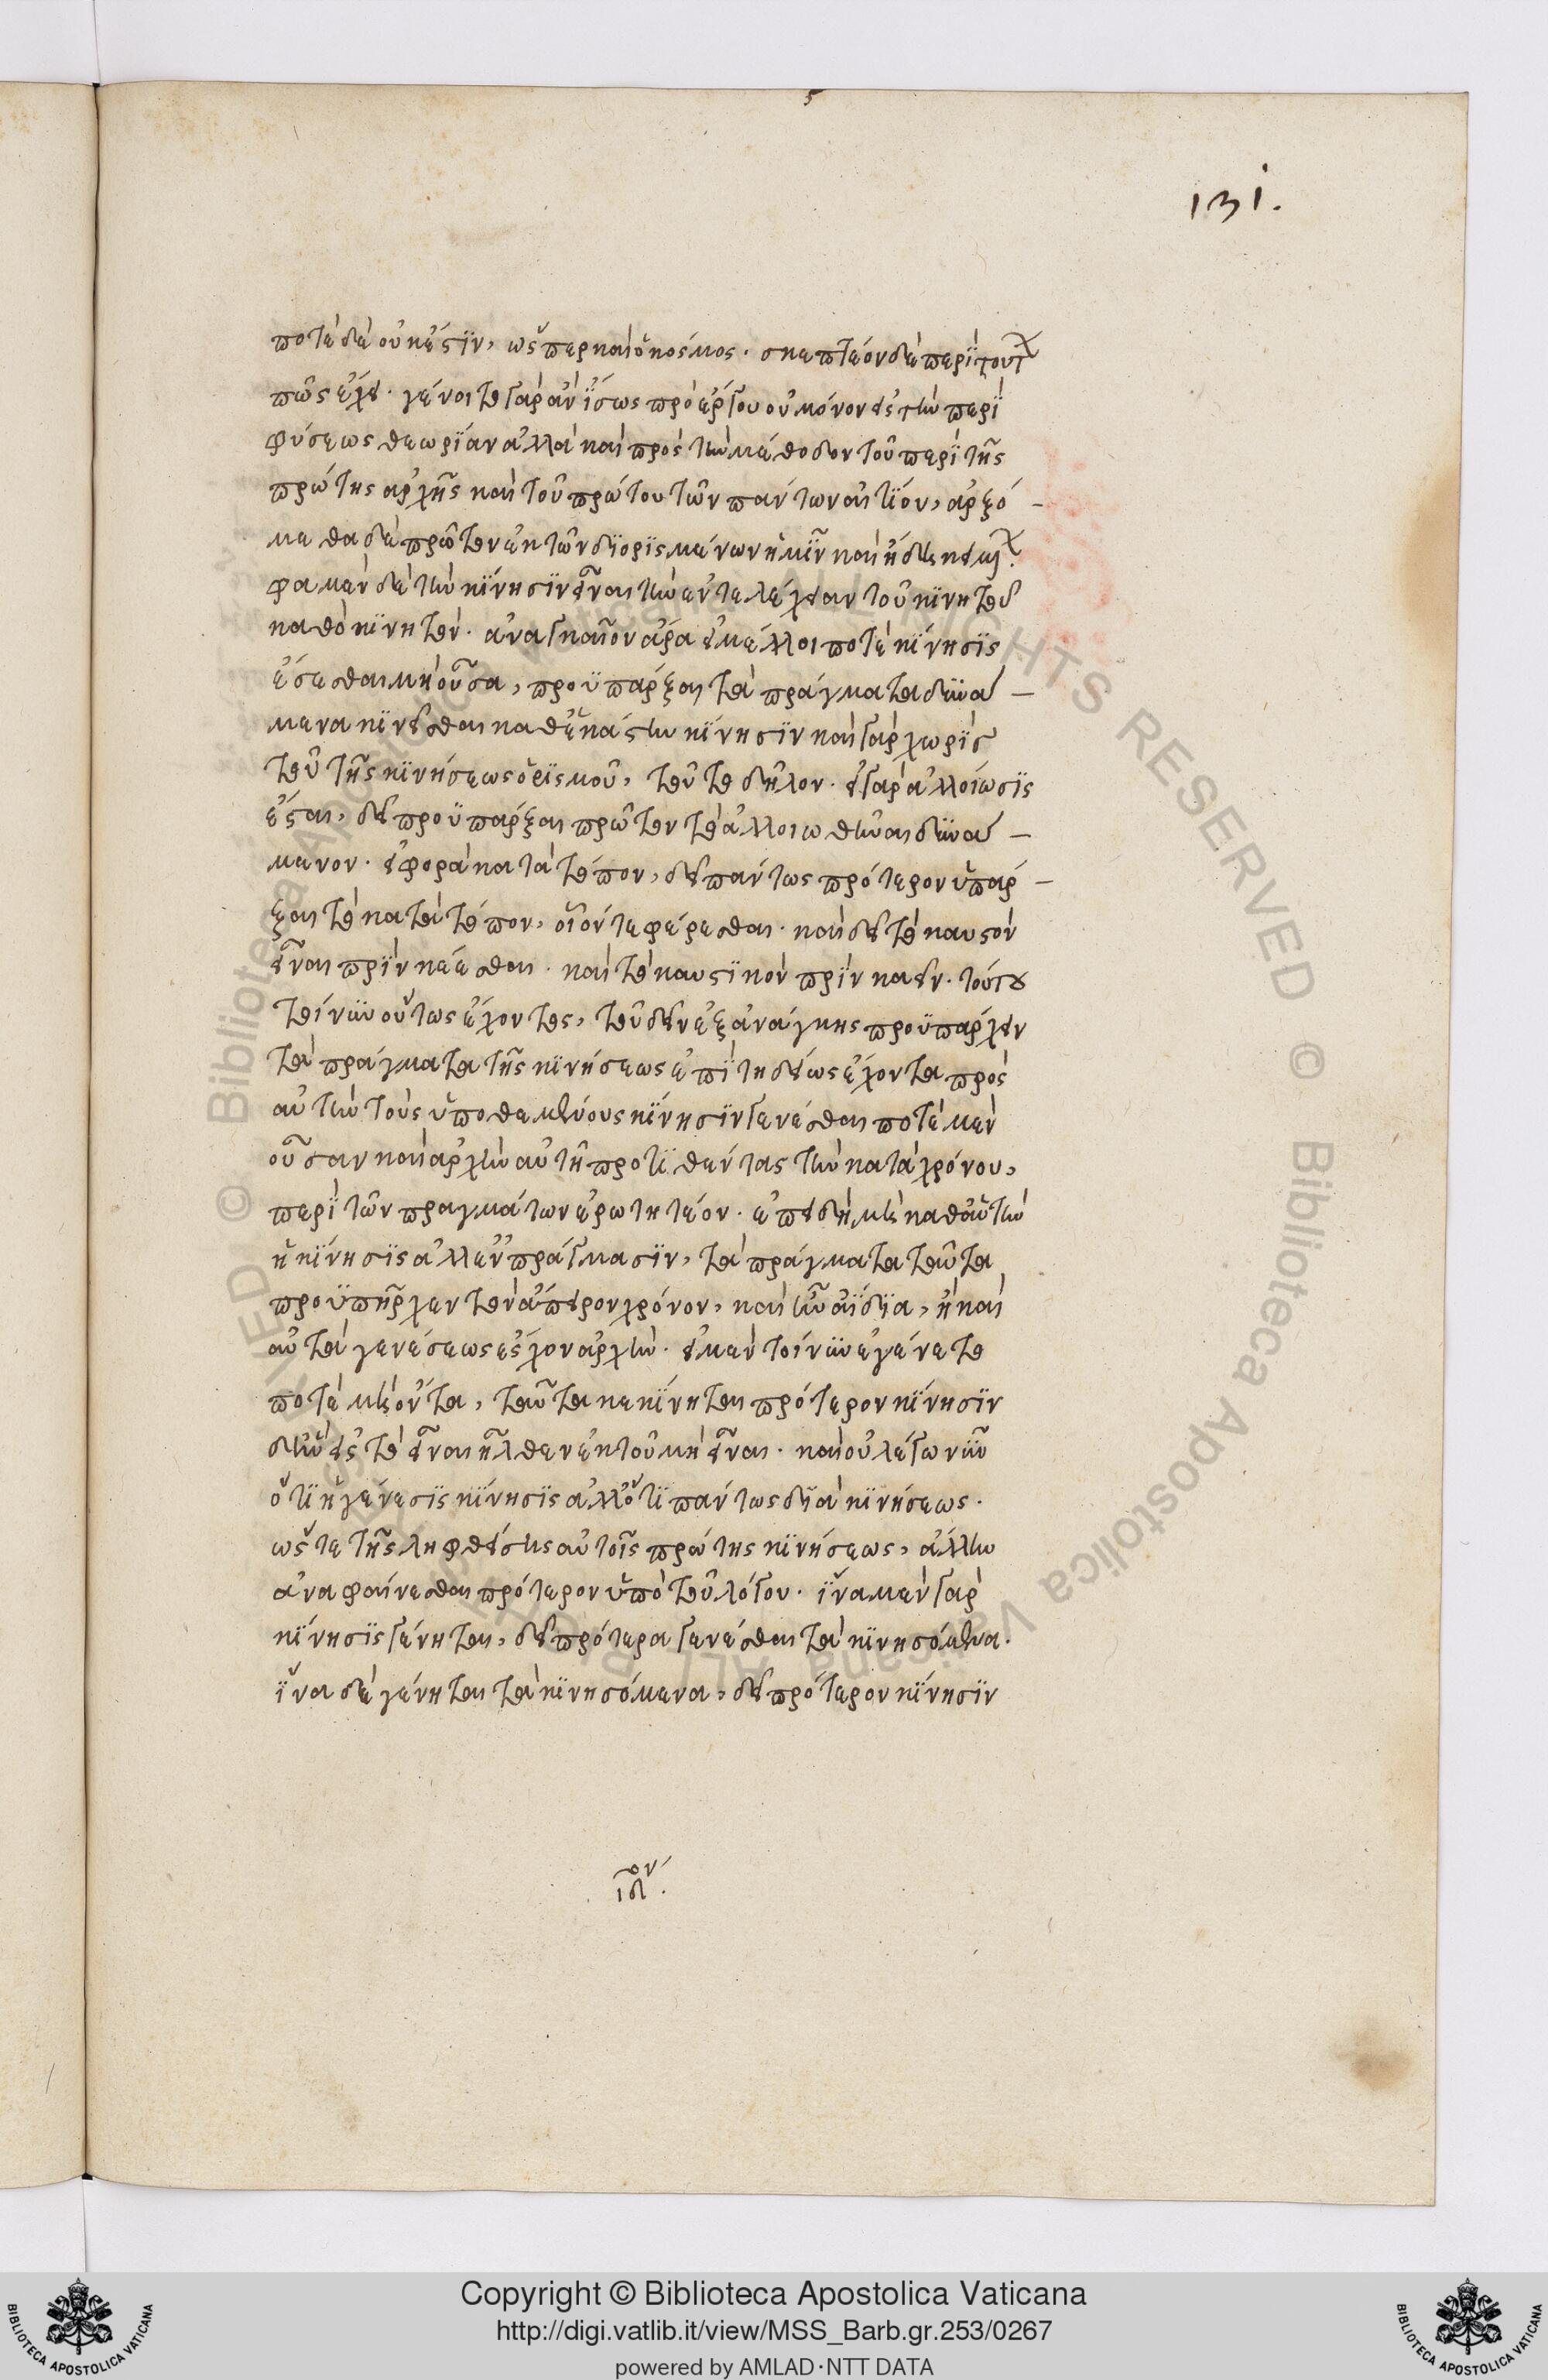 131.
ποτὲ δὲ οὐκ ἔστϊν, ὥσπερ καὶ ὁ κόσμος. σκεπτέον δὲ περὶ τούτ
πῶς ἔχει. γένοιτο γὰρ ἂν ἴσως πρὸ ἔργου οὐ μόνον εἰς τὴν περὶ
φύσεως θεωρίαν ἀλλὰ καὶ πρὸς τὴν μέθοδον τοῦ περὶ τῆς
πρώτης ἀρχῆς καὶ τοῦ πρώτου τῶν πάντων αἰτίου, ἀρξό –
μεθα δὲ πρῶτον ἐκ τῶν διορισμένων ἡμῖν καὶ
φαμὲν δὲ τὴν κίνησιν εἶναι τὴν ἐντελέχειαν τοῦ κινητοῦ
καθὸ κινητόν. ἀναγκαῖον ἄρα εἰ μέλλοι ποτὲ κίνησις
ἔσεσθαι μὴ οὖσα, προϋπάρξαι τὰ πράγματα δυνα –
μενα κινεῖσθαι καθ' ἑκάστην κίνησιν καὶ γὰρ χωρὶς
τοῦ τῆς κινήσεως ὁρισμοῦ, τοῦτο δῆλον. εἰ γὰρ ἀλλοίωσις
ἔσται, δεῖ προϋπάρξαι πρῶτον τὸ ἀλλοιωθῆναι δυνα –
μενον. εἰ φορὰ κατὰ τόπον, δεῖ πάντως πρότερον ὑπάρ –
ξαι τὸ κατὰ τόπον, οἷόν τε φέρεσθαι. καὶ δεῖ τὸ καυστὸν
εἶναι πρὶν κέεσθαι. καὶ τὸ καυστικὸν πρὶν καίειν. τούτου
τοίνυν οὕτως ἔχοντος, τοῦ δεῖν ἐξ ἀνάγκης προϋπάρχειν
τὰ πράγματα τῆς κινήσεως ἐπιτηδείως ἔχοντα πρὸς
αὐτὴν τοὺς ὑποθεμένους κίνησιν γενέσθαι ποτὲ μὲν
οὖσαν καὶ ἀρχὴν αὐτῆ προτιθέντας τὴν κατὰ χρόνου,
περὶ τῶν πραγμάτων ἐρωτητέον. ἐπειδὴ μὴ καθ' αὑτὴν
ἡ κίνησις ἀλλ' ἐν πράγμασιν, τὰ πράγματα ταῦτα
προϋπῆρχεν τὸν ἄπειρον χρόνον, καὶ ἦν ἀΐδια, ἢ καὶ
αὐτὰ γενέσεως ἔσχον ἀρχήν. εἰ μὲν τοίνυν ἐγένετο
ποτὲ μὴ ὄντα, ταῦτα κεκίνηται πρότερον κίνησιν
δι' ἣν εἰς τὸ εἶναι ἦλθεν ἐκ τοῦ μὴ εἶναι. καὶ οὐ λέγω νῦν
ὅτι ἡ γένεσις κίνησις ἀλλ' ὅτι πάντως διὰ κινήσεως.
ὥστε τῆς ληφθείσης αὐτοῖς πρώτης κινήσεως, ἄλλην
ἀναφαίνεσθαι πρότερον ὑπὸ τοῦ λόγου. ἵνα μὲν γὰρ
κίνησις γένηται, δεῖ πρότερα γενέσθαι τὰ κινησόμενα.
ἵνα δὲ γένηται τὰ κινησόμενα, δεῖ πρότερον κίνησιν
ιδον.
© Biblioteca Apostolica Vaticana ALL RIGHTS RESERVED © Biblioteca Apostolica Vaticana ALL RIGHTS RESERVED
BIBLIOTECA APOSTOLICA VATICANA
Copyright © Biblioteca Apostolica Vaticana
http://digi.vatlib.it/view/MSS_Barb.gr.253/0267
powered by AMLAD·NTT DATA
BIBLIOTECA APOSTOLICA VATICANA